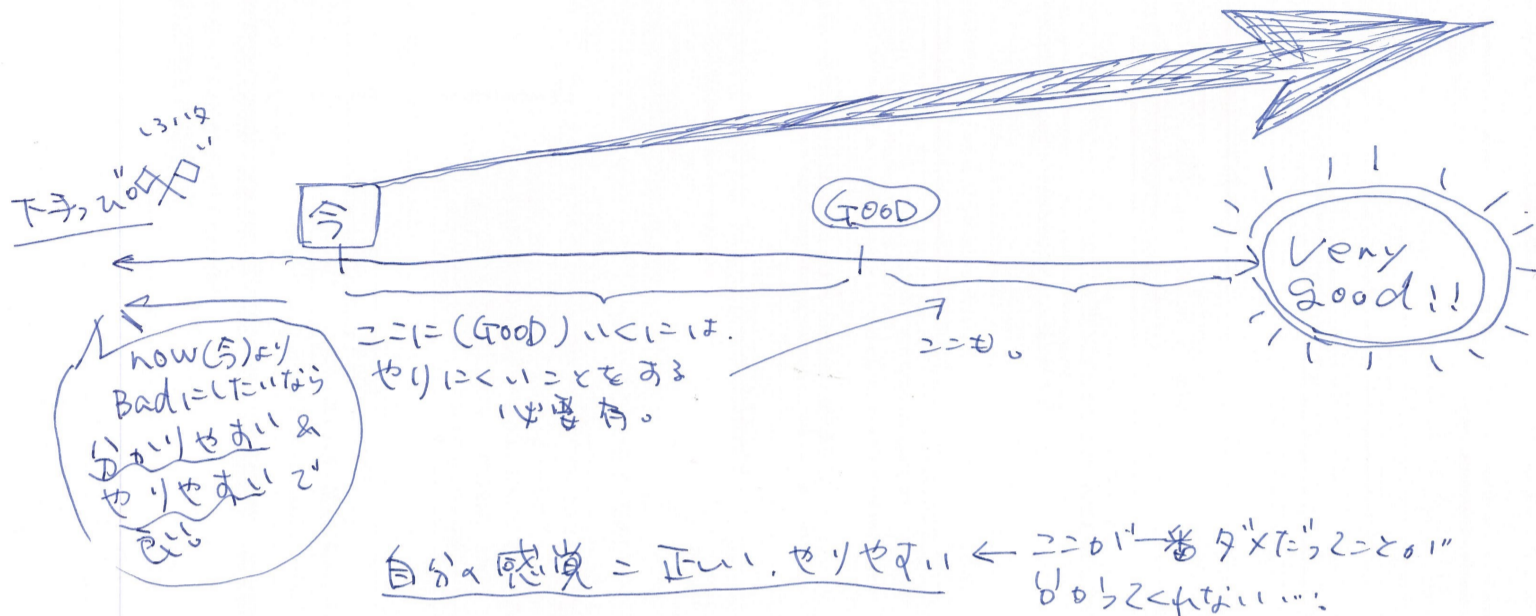 下手っぴ
今
GOOD
Very
good!!
now(今)より
Badにしたいなら
分かりやすい&
やりやすいで
ここに(GOOD)いくには.
やりにくいことをする
必要有。
ここも。
自分の感覚=正しい.やりやすい ← ここが一番ダメだってことが
分かってくれない…